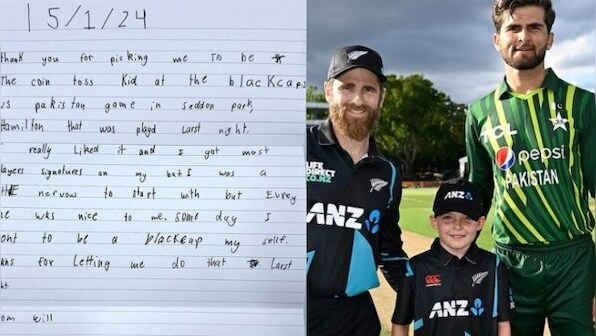 15/1/24
hank you for picking me To be
The coin toss Kid at the blackcaps
s pakistan game in seddon park
Hamilton that was playd Larst night.
really Liked it and I got most
layers signatures on my bat I was a
nervous to start with but Evrey
ne was nice to me. some day I
ont to be a blackcap my self.
ans for Letting me do that Larst
ht.
om will
LIFE
DIRECT
CO.NZ
ANZ
ANZ
ANZ
TCL
pepsi
PAKISTAN